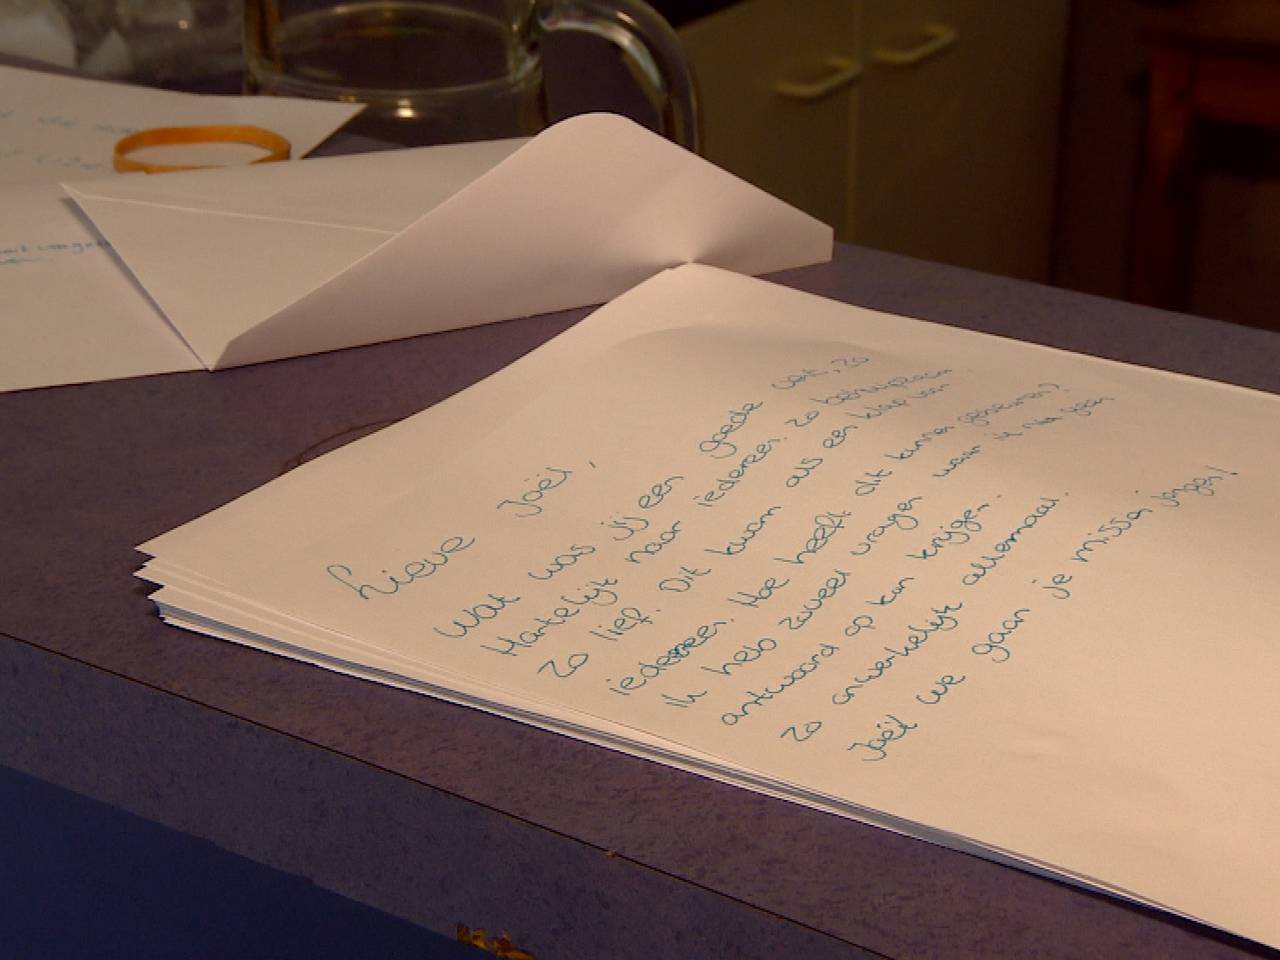 Lieve Joël,
Wat was jij een goede vent, zo
Hartelijk naar iedereen. Zo behulpzaam
zo lief. Dit kwam als een klap voor
iedereen. Hoe heeft dit kunnen gebeuren?
Ik heb zoveel vragen waar ik nu geen
antwoord op kan krijgen.
Zo onwerkelijk allemaal.
Joël we gaan je missen jongen!